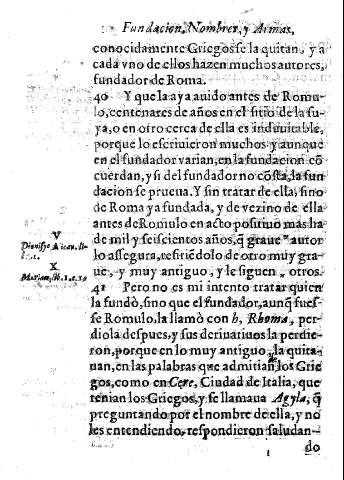 Fundacion, Nombres, y Armas,
conocidamente Griegos se la quitan, y a
cada vno de ellos hazen muchos autores,
fundador de Roma.
40 Y que la aya auido antes de Romu-
lo, centenares de años en el sitio de la su-
ya, o en otro cerca de ella es indubitable,
porque lo escriuieron muchos y aunque
en el fundador varian, en la fundacion cō
cuerdan, y si del fundador no cōsta, la fun
dacion se prueua. Y sin tratar de ella, sino
de Roma ya fundada, y de vezino de ella
antes de Romulo en acto positiuo mas ha
de mil y seiscientos años, q̃ graue v autor
lo assegura, refiriēdolo de otro muy gra-
ue, y muy antiguo, y le siguen x otros.
V
Dionisio
X
41 Pero no es mi intento tratar quien
la fundò, sino que el fundador, aunq̃ fues-
se Romulo, la llamò con h, Rhoma, per-
diola despues, y sus deriuatiuos la perdie-
ron, porque en lo muy antiguo, la quita-
uan, en las palabras que admitian los Grie
gos, como en Cere, Ciudad de Italia, que
tenian los Griegos, y se llamaua Agyla, q̃
preguntando por el nombre de ella, y no
les entendiendo, respondieron saludan-
do